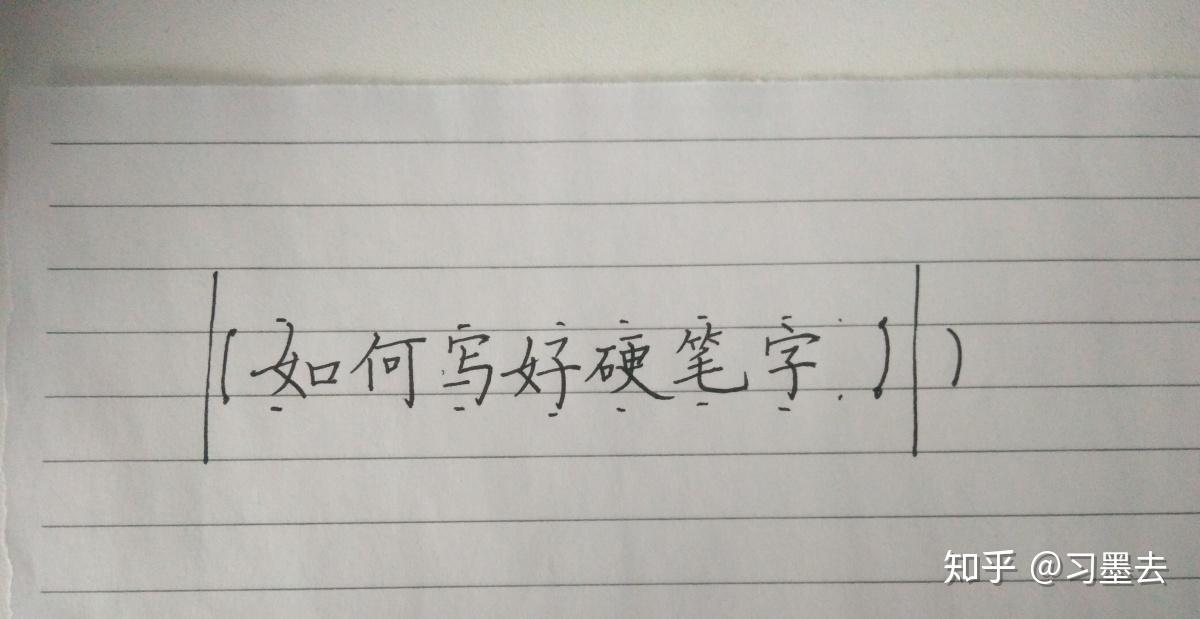 (如何写好硬笔字))
知乎 @习墨去